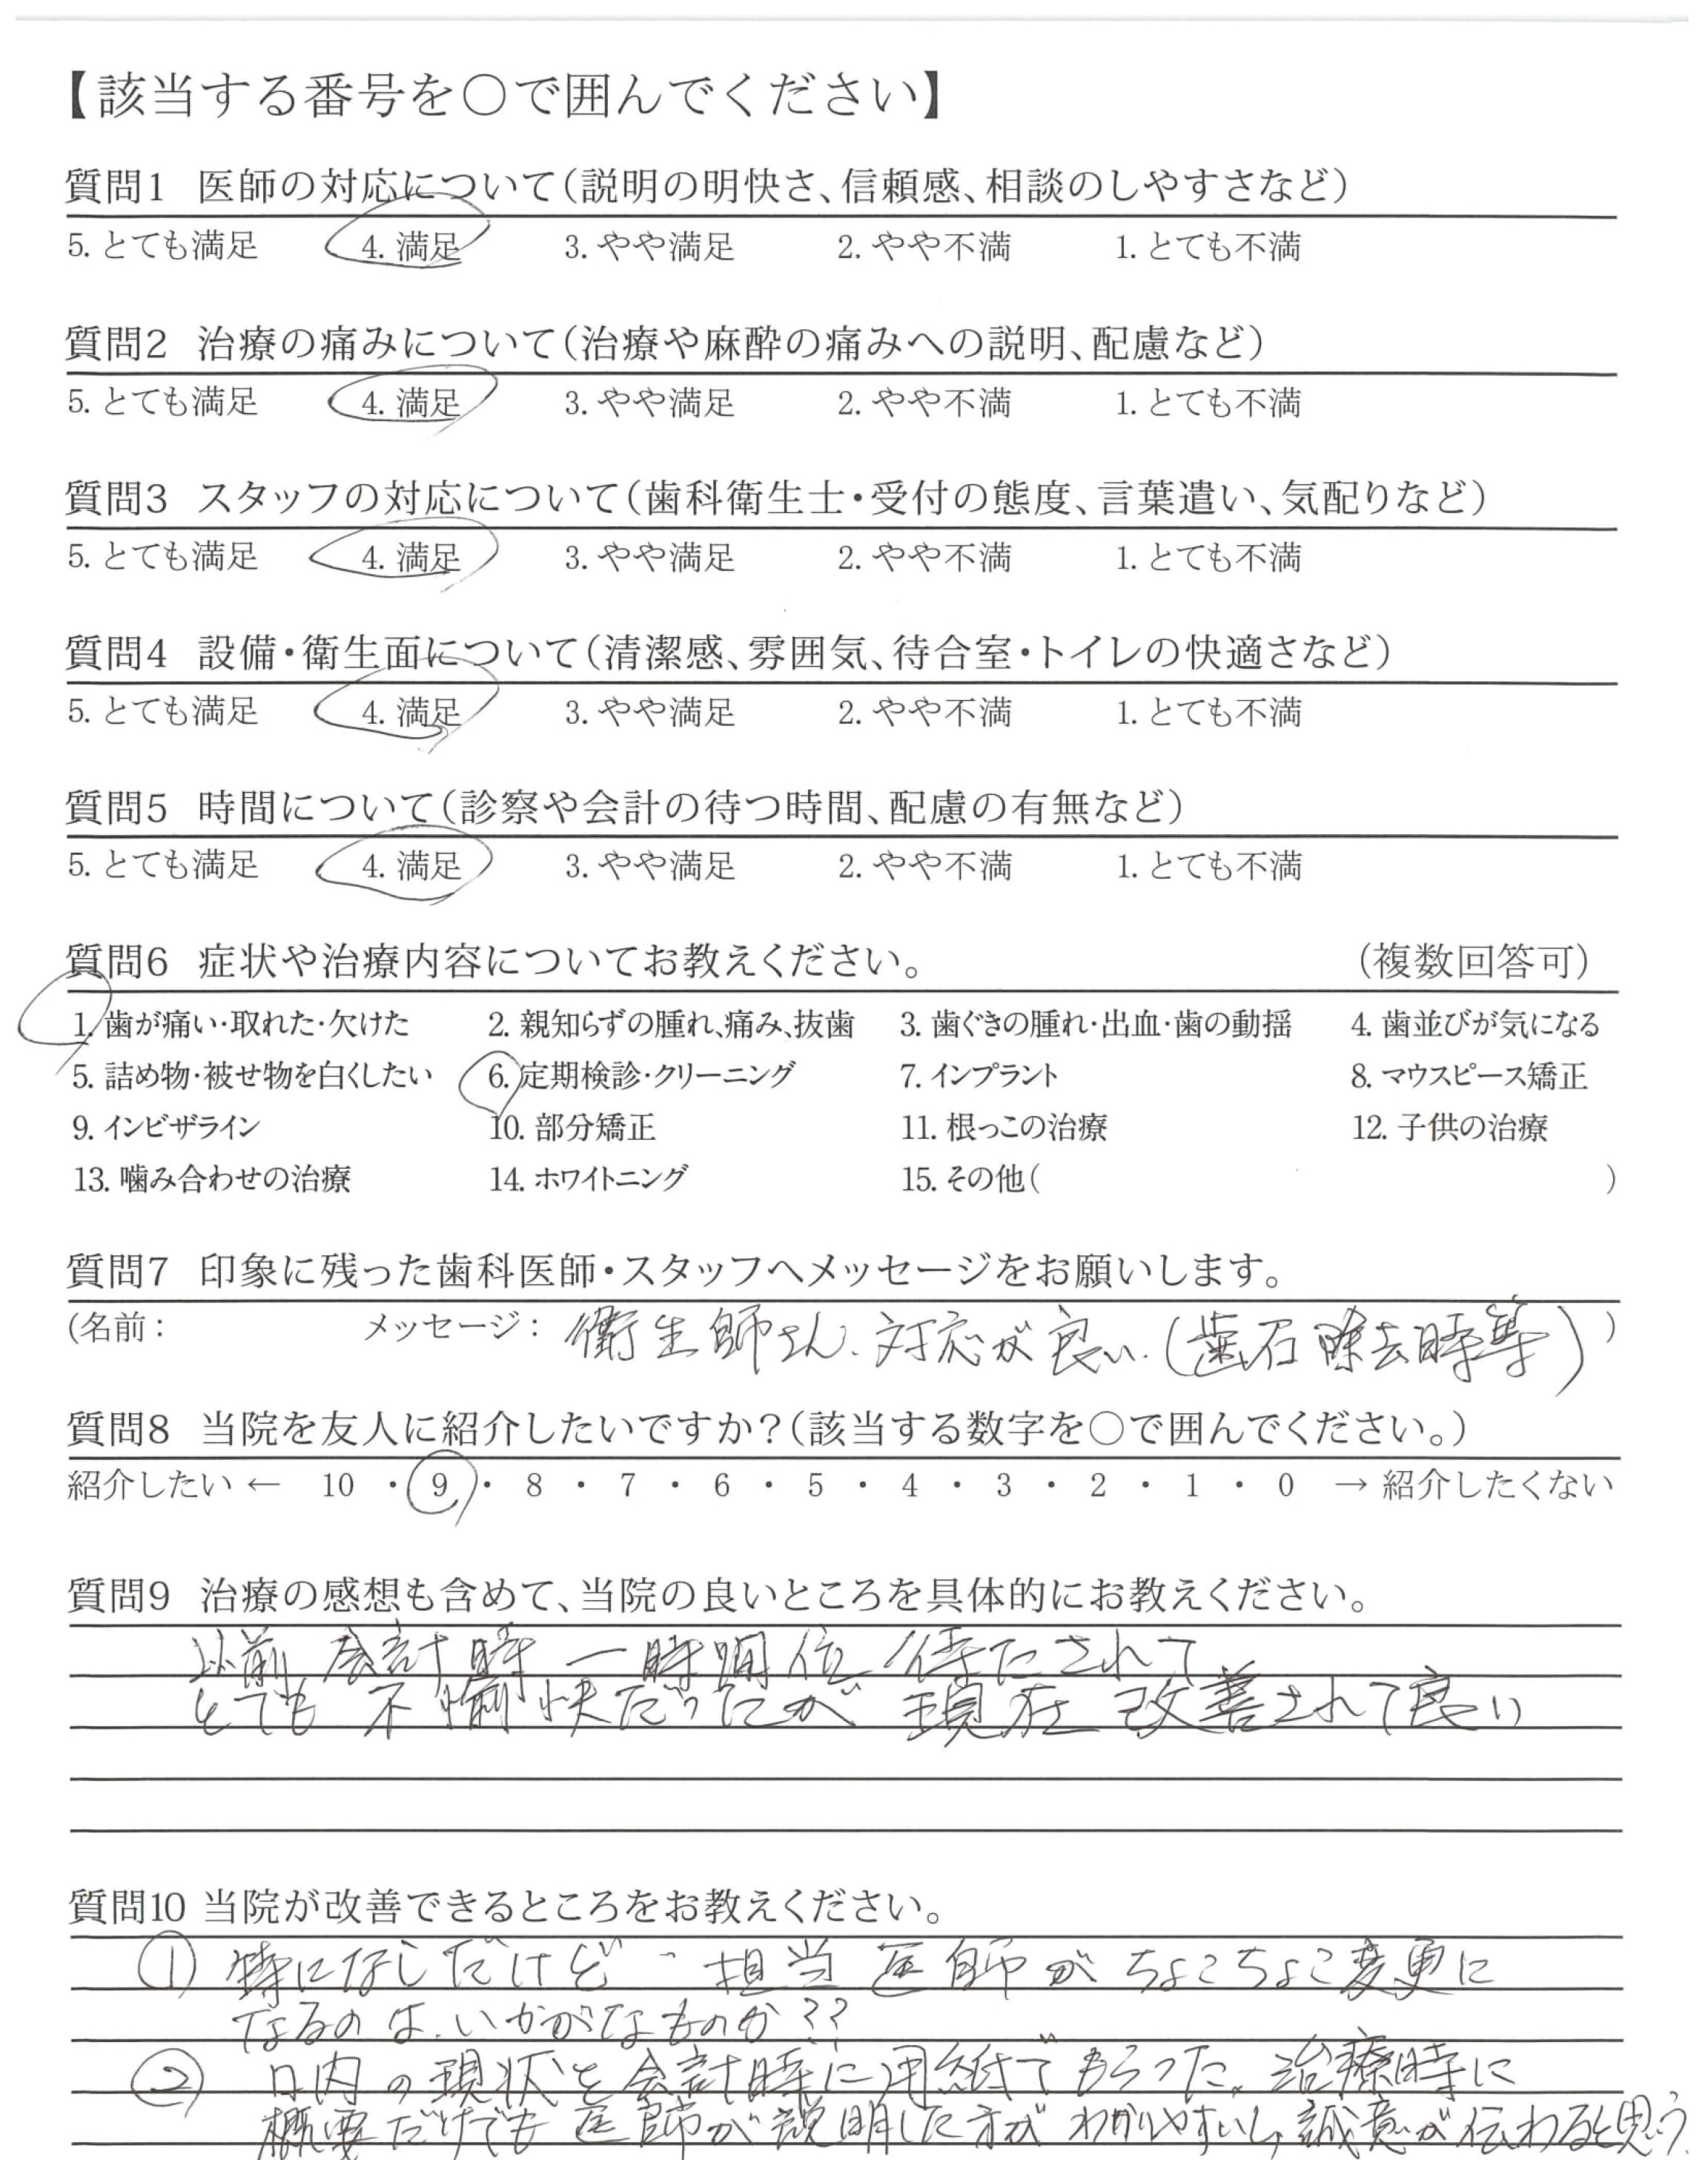 【該当する番号を○で囲んでください】
質問1 医師の対応について(説明の明快さ、信頼感、相談のしやすさなど)
5. とても満足 4. 満足 3. やや満足 2. やや不満 1. とても不満
質問2 治療の痛みについて(治療や麻酔の痛みへの説明、配慮など)
5. とても満足 4. 満足 3. やや満足 2. やや不満 1. とても不満
質問3 スタッフの対応について(歯科衛生士・受付の態度、言葉遣い、気配りなど)
5. とても満足 4. 満足 3. やや満足 2. やや不満 1. とても不満
質問4 設備・衛生面について(清潔感、雰囲気、待合室・トイレの快適さなど)
5. とても満足 4. 満足 3. やや満足 2. やや不満 1. とても不満
質問5 時間について(診察や会計の待つ時間、配慮の有無など)
5. とても満足 4. 満足 3. やや満足 2. やや不満 1. とても不満
質問6 症状や治療内容についてお教えください。 (複数回答可)
1. 歯が痛い・取れた・欠けた 2. 親知らずの腫れ、痛み、抜歯 3. 歯ぐきの腫れ・出血・歯の動揺 4. 歯並びが気になる
5. 詰め物・被せ物を白くしたい 6. 定期検診・クリーニング 7. インプラント 8. マウスピース矯正
9. インビザライン 10. 部分矯正 11. 根っこの治療 12. 子供の治療
13. 噛み合わせの治療 14. ホワイトニング 15. その他( )
質問7 印象に残った歯科医師・スタッフへメッセージをお願いします。
(名前: メッセージ: 衛生師さん、対応が良い。(歯石除去時等) )
質問8 当院を友人に紹介したいですか?(該当する数字を○で囲んでください。)
紹介したい ← 10 ・ 9 ・ 8 ・ 7 ・ 6 ・ 5 ・ 4 ・ 3 ・ 2 ・ 1 ・ 0 → 紹介したくない
質問9 治療の感想も含めて、当院の良いところを具体的にお教えください。
以前 会計時 一時間位 待たされて
とても 不愉快だったが 現在 改善されて良い
質問10 当院が改善できるところをお教えください。
① 特になしだけど 担当 医師が ちょこちょこ変更に
なるのは、いかがなものか??
② 口内の現状を会計時に用紙でもらった。治療時に
概要だけでも 医師が説明した方が わかりやすいし、誠意が伝わると思う